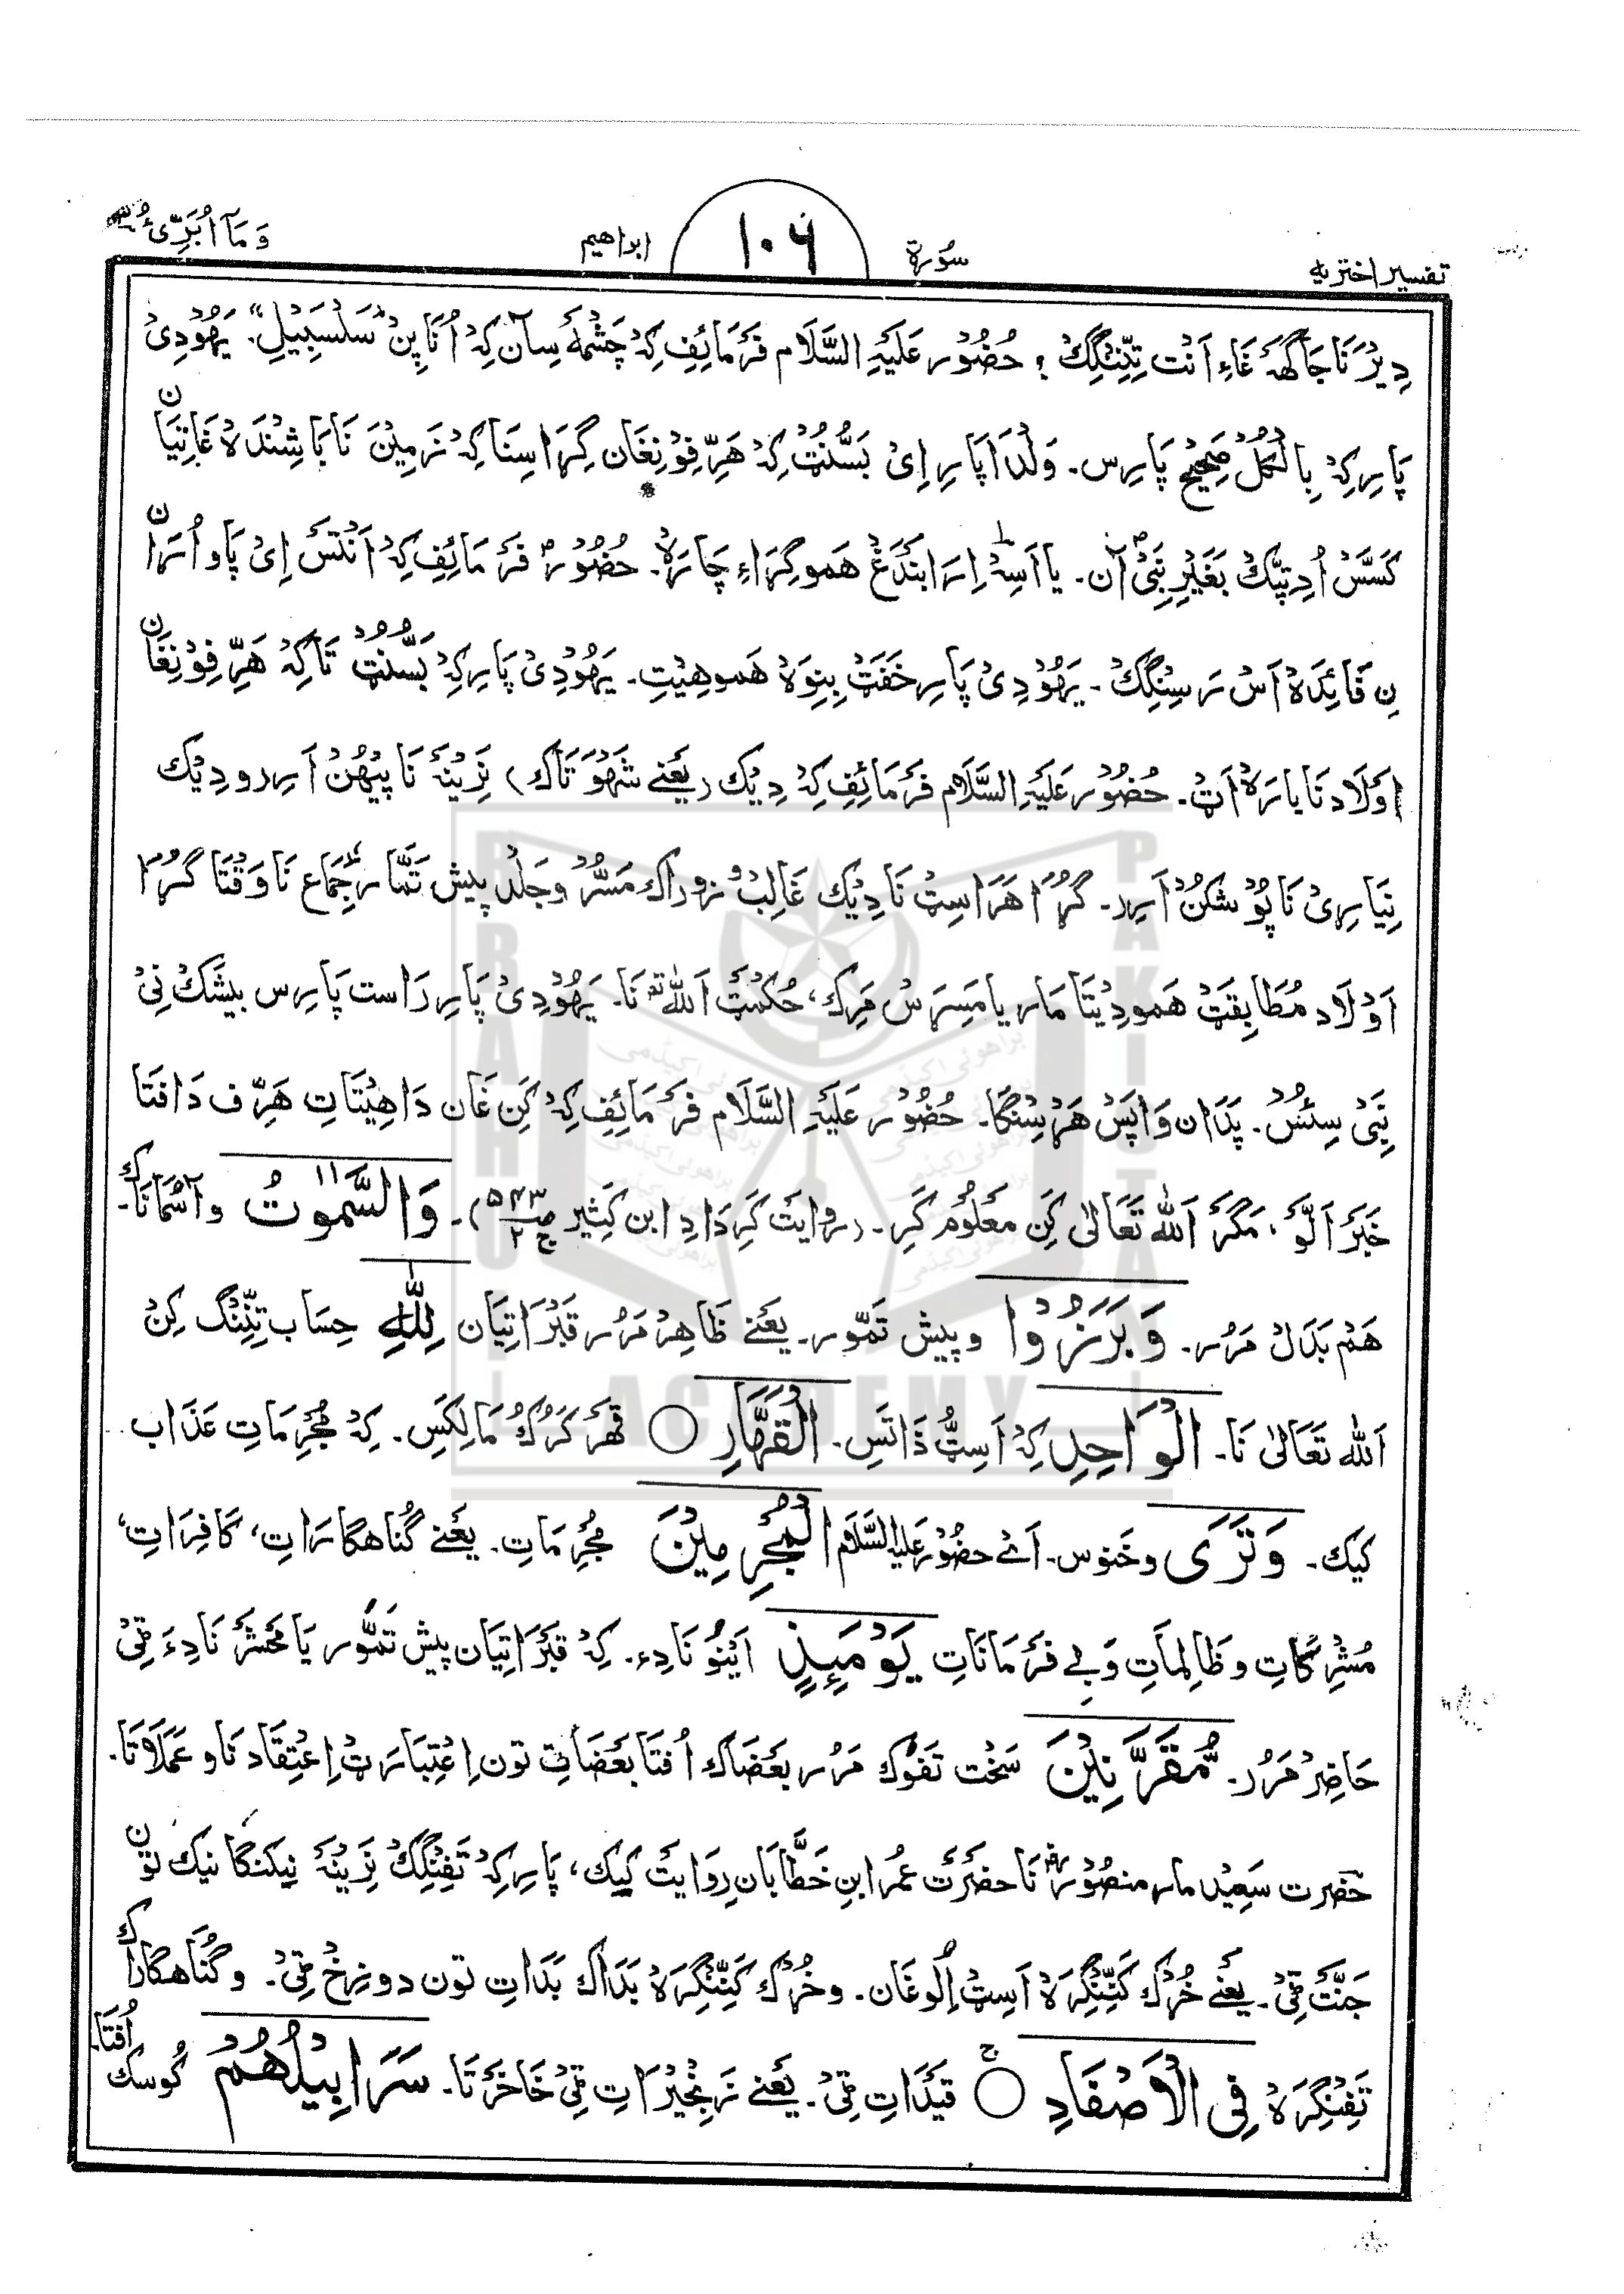 تفسیر اختریه سُورة ١٠٦ ابراهیم وَمَآ اُبَرِّئُ
دِیرْ نَا جَاگَهَ غَاءِ اَنْت تِنِّنْگِکْ ؟ حُضُوْر عَلَیْہِ السَّلَام فَرْمَائِفِ کِہْ چَشْمَهْ سِآن کِہْ اُنَا پِنْ "سَلْسَبِیْلِ". یَهُوْدِیْ
پَارِ کِہْ بِالْکُلْ صَحِیْح پَارِس۔ وَلْدَا پَارِ اِیْ بَسُّنُٹْ کِہْ هَرِّفِوْ نِغَان گِرَا سِنَا کِہْ زَمِیْنَ نَا بَاشِنْدَهْ غَاتِیَانْ
کَسَّسْ اُدِ تِپَکْ بَغَیْرِ نَبِیْ آن۔ یا اَسِہْ اِرَا بَنْدَغْ هَمو گِرَاءِ چَارَهْ۔ حُضُوْر فَرْمَائِفِ کِہْ اَنْتَسْ اِیْ پَاو اُرَانْ
نِ فَائِدَهْ اَسْ رَسِنْگِکْ۔ یَهُوْدِیْ پَارِ خَفَتْ بِنِوَهْ هَمو هِیْتِ۔ یَهُوْدِیْ پَارِ کِہْ بَسُّنُٹْ تَا کِہْ هَرِّفِوْ نِغَانْ
اَوْلَاد نَا بَارَهْ اَٹْ۔ حُضُوْر عَلَیْہِ السَّلَام فَرْمَائِفِ کِہْ دِیْک (یَعْنے شَهْوَتَاک) نَرِیْنَهْ نَا پِیْهُنْ اَرِر و دِیْک
نِیَارِیْ نَا پُوْشْکُنْ اَرِر۔ گُڑَا هَرَاسِٹْ نَا دِیْک غَالِبْ زوراک مَسُّرْ و جَلْد پیش تَمَّار جِمَاع نَا وَقْتَا گُڑَا
اَوْلَاد مُطَابِقَتْ هَمو دِیْتَا مَار یا مَسِرَسْ مَرِک، حُکْمَتْ اَللّٰه نَا۔ یَهُوْدِیْ پَارِ رَاست پَارِس بیشَکْ نِیْ
نَبِیْ سِئسْ۔ پَدَان وَاپَسْ هَرْسِنْگَا۔ حُضُوْر عَلَیْہِ السَّلَام فَرْمَائِفِ کِہْ کَنِ غَان دَا هِیْتَاتِ هَرِّف دَا فْتَا
خَبَرْ اَلَّوْ، مَگَرْ اَللّٰه تَعَالیٰ کَنِ مَعْلُوْم کَرِ۔ (روایَتْ کَرِ دَادِ ابن کَثِیر ص ۵۴۳ ج ۲)۔ وَالسَّمٰوٰتُ و آسْمَانَاکْ۔
هَمْ بَدَلْ مَرُر۔ وَبَرَزُوْا و پیش تَمُّور۔ یَعْنے ظَاهِرْ مَرُر قَبْرَاتِیَان لِلّٰہِ حِسَاب تِنِّنْگ کِنْ
اَللّٰه تَعَالیٰ نَا۔ الْوَاحِدِ کِہْ اَسِٹْ ذَاتَسِ۔ الْقَهَّارِ ○ قَهْر کَرُکُ مَالِکَسِ۔ کِہْ مُجْرِمَاتِ عَذَاب
کیک۔ وَتَرَی و خَنوس۔ اَئے حضُوْر عَلَیْہِ السَّلَام الْمُجْرِمِیْنَ مُجْرِمَاتِ۔ یَعْنے گُنَاهگارَاتِ، کَافِرَاتِ،
مُشْرِکَاتِ و ظَالِمَاتِ وَ بے فَرْمَانَاتِ یَوْمَئِذٍ اَیْنُو نَا دِء۔ کِہْ قَبْرَاتِیَان پیش تَمُّور یَا مَحْشَرْ نَا دِءَ ٹِیْ
حَاضِرْ مَرُر۔ مُّقَرَّنِیْنَ سَخْت تَفوک مَرُر بَعْضَاک اُفتَا بَعْضَاتِ تون اِعْتِبَارَتْ اِعْتِقَاد نَا و عَمَلَاتَا۔
حَضْرت سَعِیْد مار منصُوْر نَا حضْرَتْ عُمَر ابنِ خَطَّابَان رِوَایَتْ کیک، پَارِ کِہْ تَفِنْگِکْ نَرِیْنَهْ نِیکنْگا نیک تونْ
جَنَّتْ ٹِیْ۔ یَعْنے خُرْک کَنِّنْگِرَهْ اَسِٹْ اِلوغَان۔ و خُرْک کَنِّنْگِرَهْ بَدَاک بَدَاتِ تون دوزَخْ ٹِیْ۔ و گُنَاهگارَاکْ
تَفِنْگِرَهْ فِی الْاَصْفَادِ ○ قَیْدَاتِ ٹِیْ۔ یَعْنے زَنْجِیْرَاتِ ٹِیْ خَاخَرْتَا۔ سَرَابِیْلُهُمْ کُوسک اُفتَا۔
BRAHUI ACADEMY PAKISTAN
براهوئی اکیڈمی